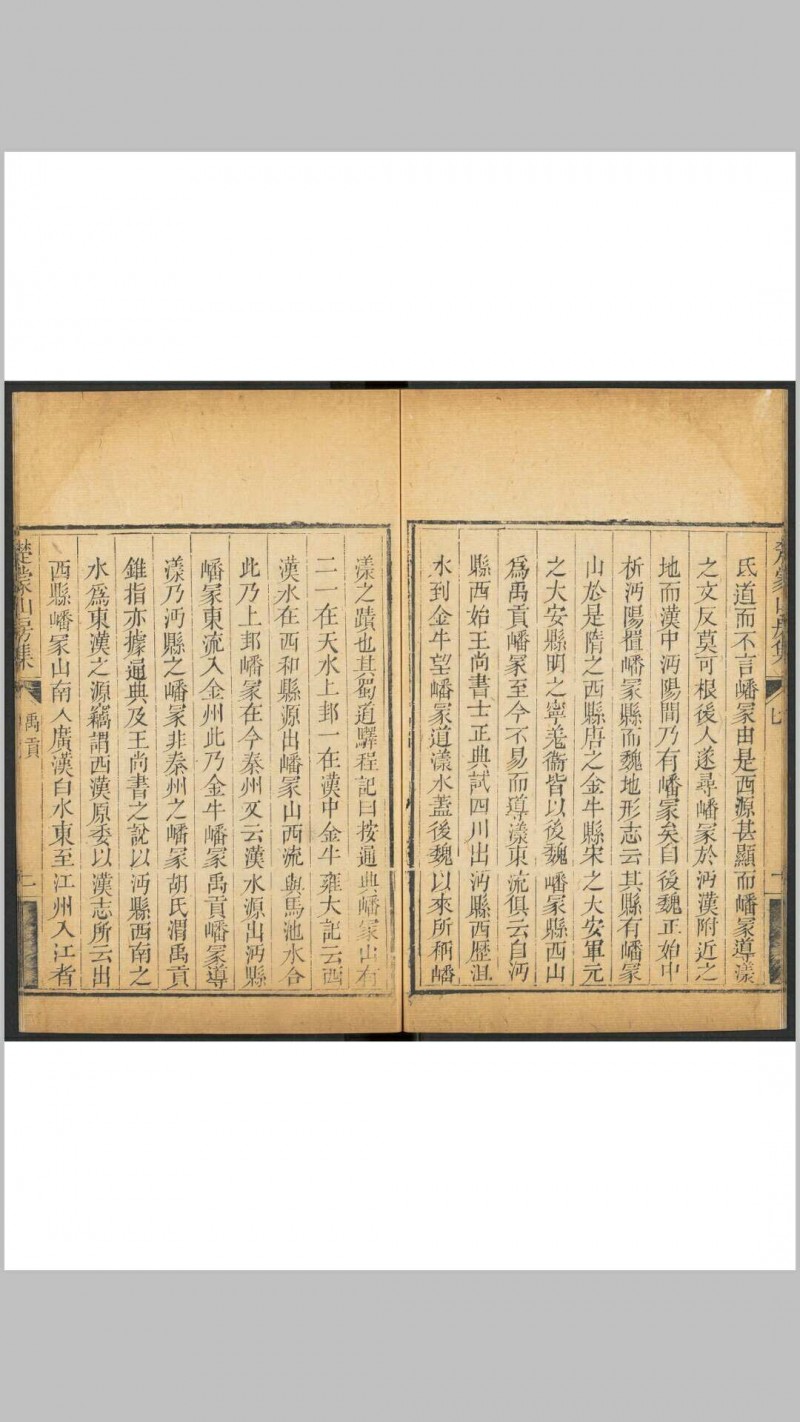 氏道而不言嶓冢由是西源甚顯而嶓冢導漾
之文反莫可根後人遂尋嶓冢於沔漢附近之
地而漢中沔陽間乃有嶓冢矣自後魏正始中
析沔陽置嶓冢縣而魏地形志云其縣有嶓冢
山於是隋之西縣唐之金牛縣宋之大安軍元
之大安縣明之寧羌衞皆以後魏嶓冢縣西山
為禹貢嶓冢至今不易而導漾東流俱云自沔
縣西始王尚書士正典試四川出沔縣西歷沮
水到金牛望嶓冢道漾水蓋後魏以來所稱嶓
漾之蹟也其蜀道驛程記曰按通典嶓冢山有
二一在天水上邽一在漢中金牛雍大記云西
漢水在西和縣源出嶓冢山西流與馬池水合
此乃上邽嶓冢在今秦州又云漢水源出沔縣
嶓冢東流入金州此乃金牛嶓冢禹貢嶓冢導
漾乃沔縣之嶓冢非秦州之嶓冢胡氏渭禹貢
錐指亦據通典及王尚書之說以沔縣西南之
水為東漢之源竊謂西漢原委以漢志所云出
西縣嶓冢山南入廣漢白水東至江州入江者
楚蒙山房集
禹貢
二